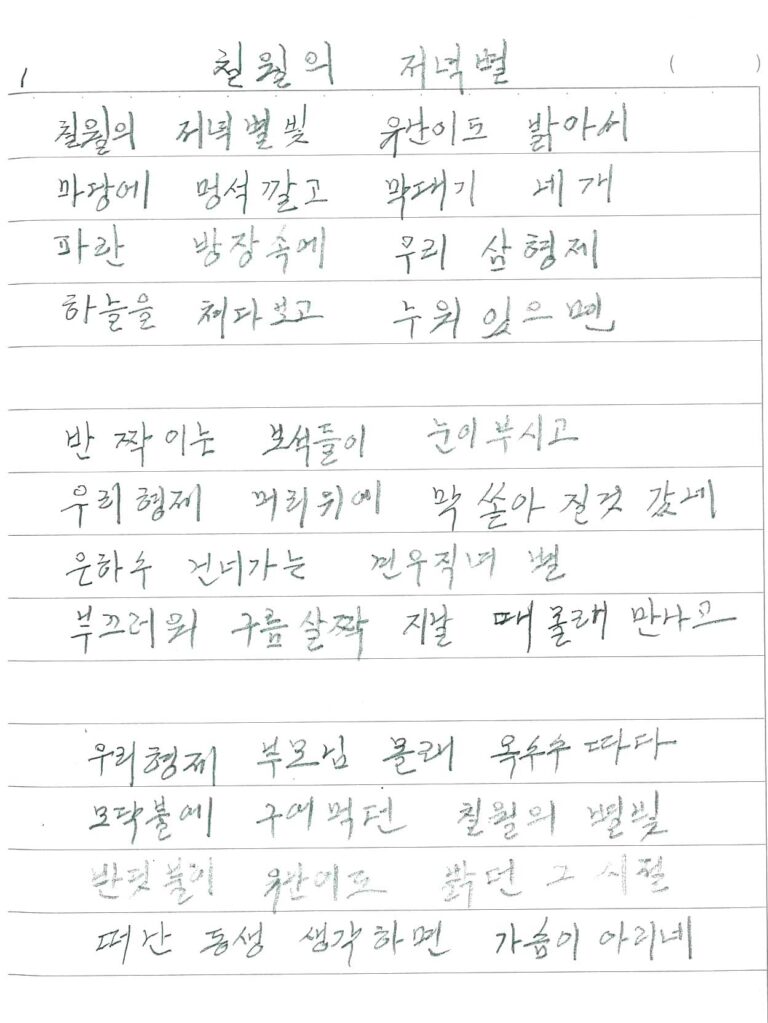 1 칠월의 저녁별 ( )
칠월의 저녁별빛 유난이도 밝아서
마당에 멍석깔고 막대기 네개
파란 방장속에 우리 삼형제
하늘을 쳐다보고 누워있으면
반짝이는 보석들이 눈이부시고
우리형제 머리위에 막 쏟아질것 같네
은하수 건너가는 견우직녀 별
부끄러워 구름살짝 지날 때 몰래 만나고
우리형제 부모님 몰래 옥수수 따다
모닥불에 구어먹던 칠월의 별빛
반딧불이 유난이도 밝던 그 시절
떠난 동생 생각하면 가슴이 아리네